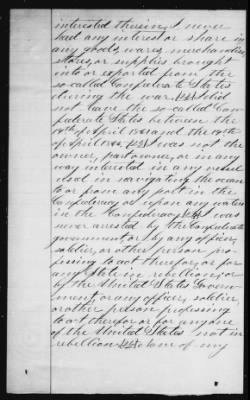 interested therein, I never
had any interest or share in
any goods, wares, merchandise,
stores, or supplies brought
into or exported from the
so-called Confederate States
during the war. I did
not leave the so-called Con-
federate States between the
19th of April 1861 and the 19th
of April 1865. I was not the
owner, part owner, or in any
way interested in any vessel
in navigating the ocean
to or from any port in the
Confederacy or upon any waters
in the Confederacy. I was
never arrested by the Confederate
government, or by any officer,
soldier, or other person pro-
fessing to act therefor, or for
any State in rebellion, or
by the United States Govern-
ment, or any officer, soldier,
or other person professing
to act therefor or for any one
of the United States not in
rebellion. None of my